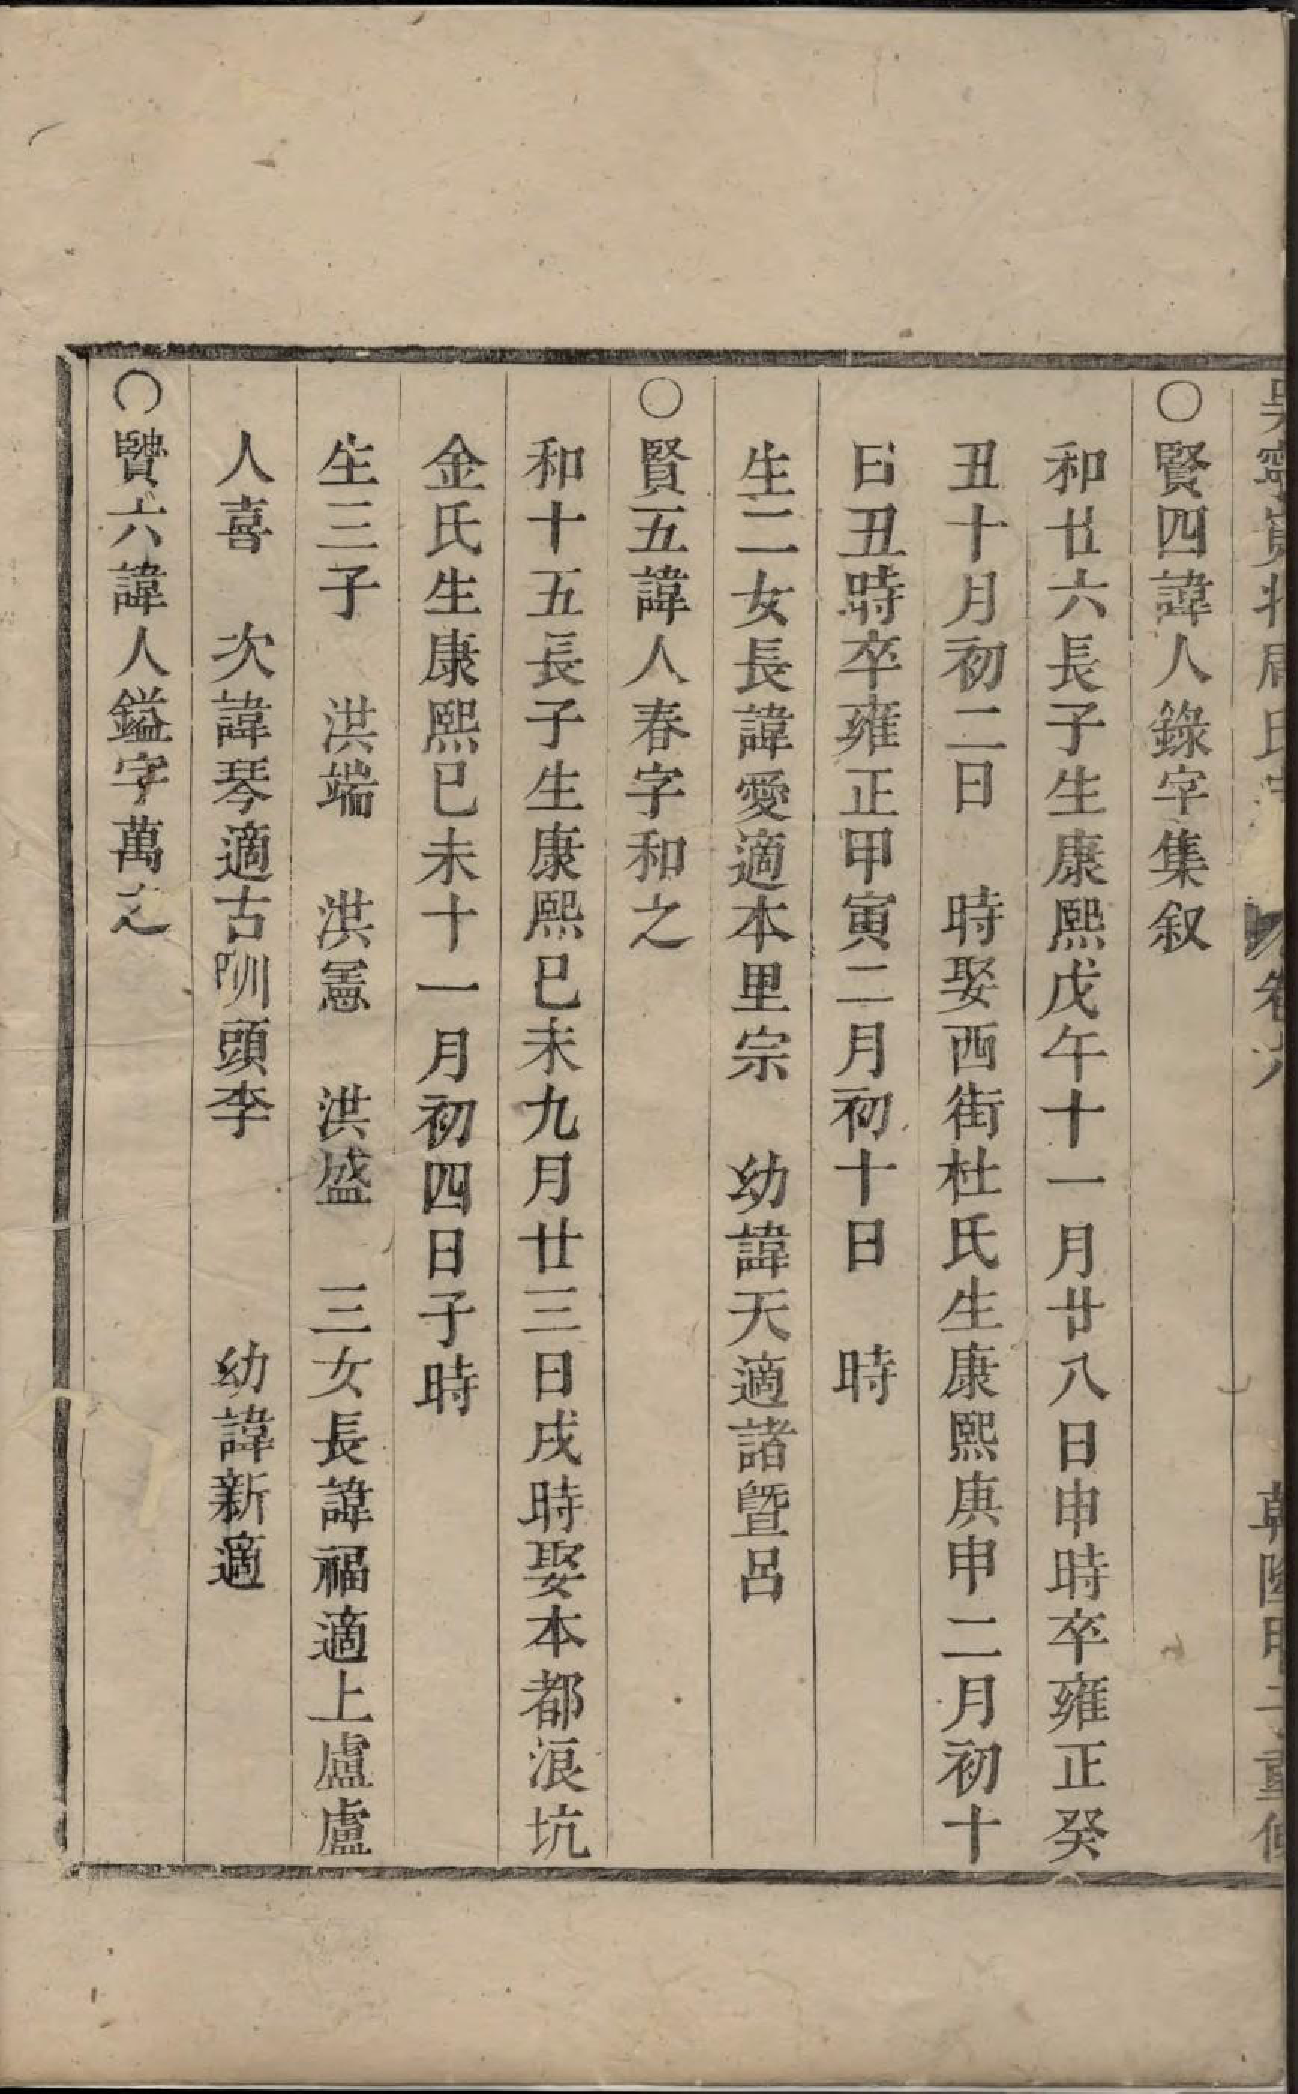 卷六
○賢四諱人錄字集叙
和廿六長子生康熙戊午十一月廿八日申時卒雍正癸
丑十月初二日　時娶西街杜氏生康熙庚申二月初十
日丑時卒雍正甲寅二月初十日　時
生二女長諱愛適本里宗　幼諱天適諸暨呂
○賢五諱人春字和之
和十五長子生康熙已未九月廿三日戌時娶本都浪坑
金氏生康熙已未十一月初四日子時
生三子　洪端　洪憲　洪盛　三女長諱福適上盧盧
人喜　次諱琴適古頭李　幼諱新適
○賢六諱人鎰字萬之